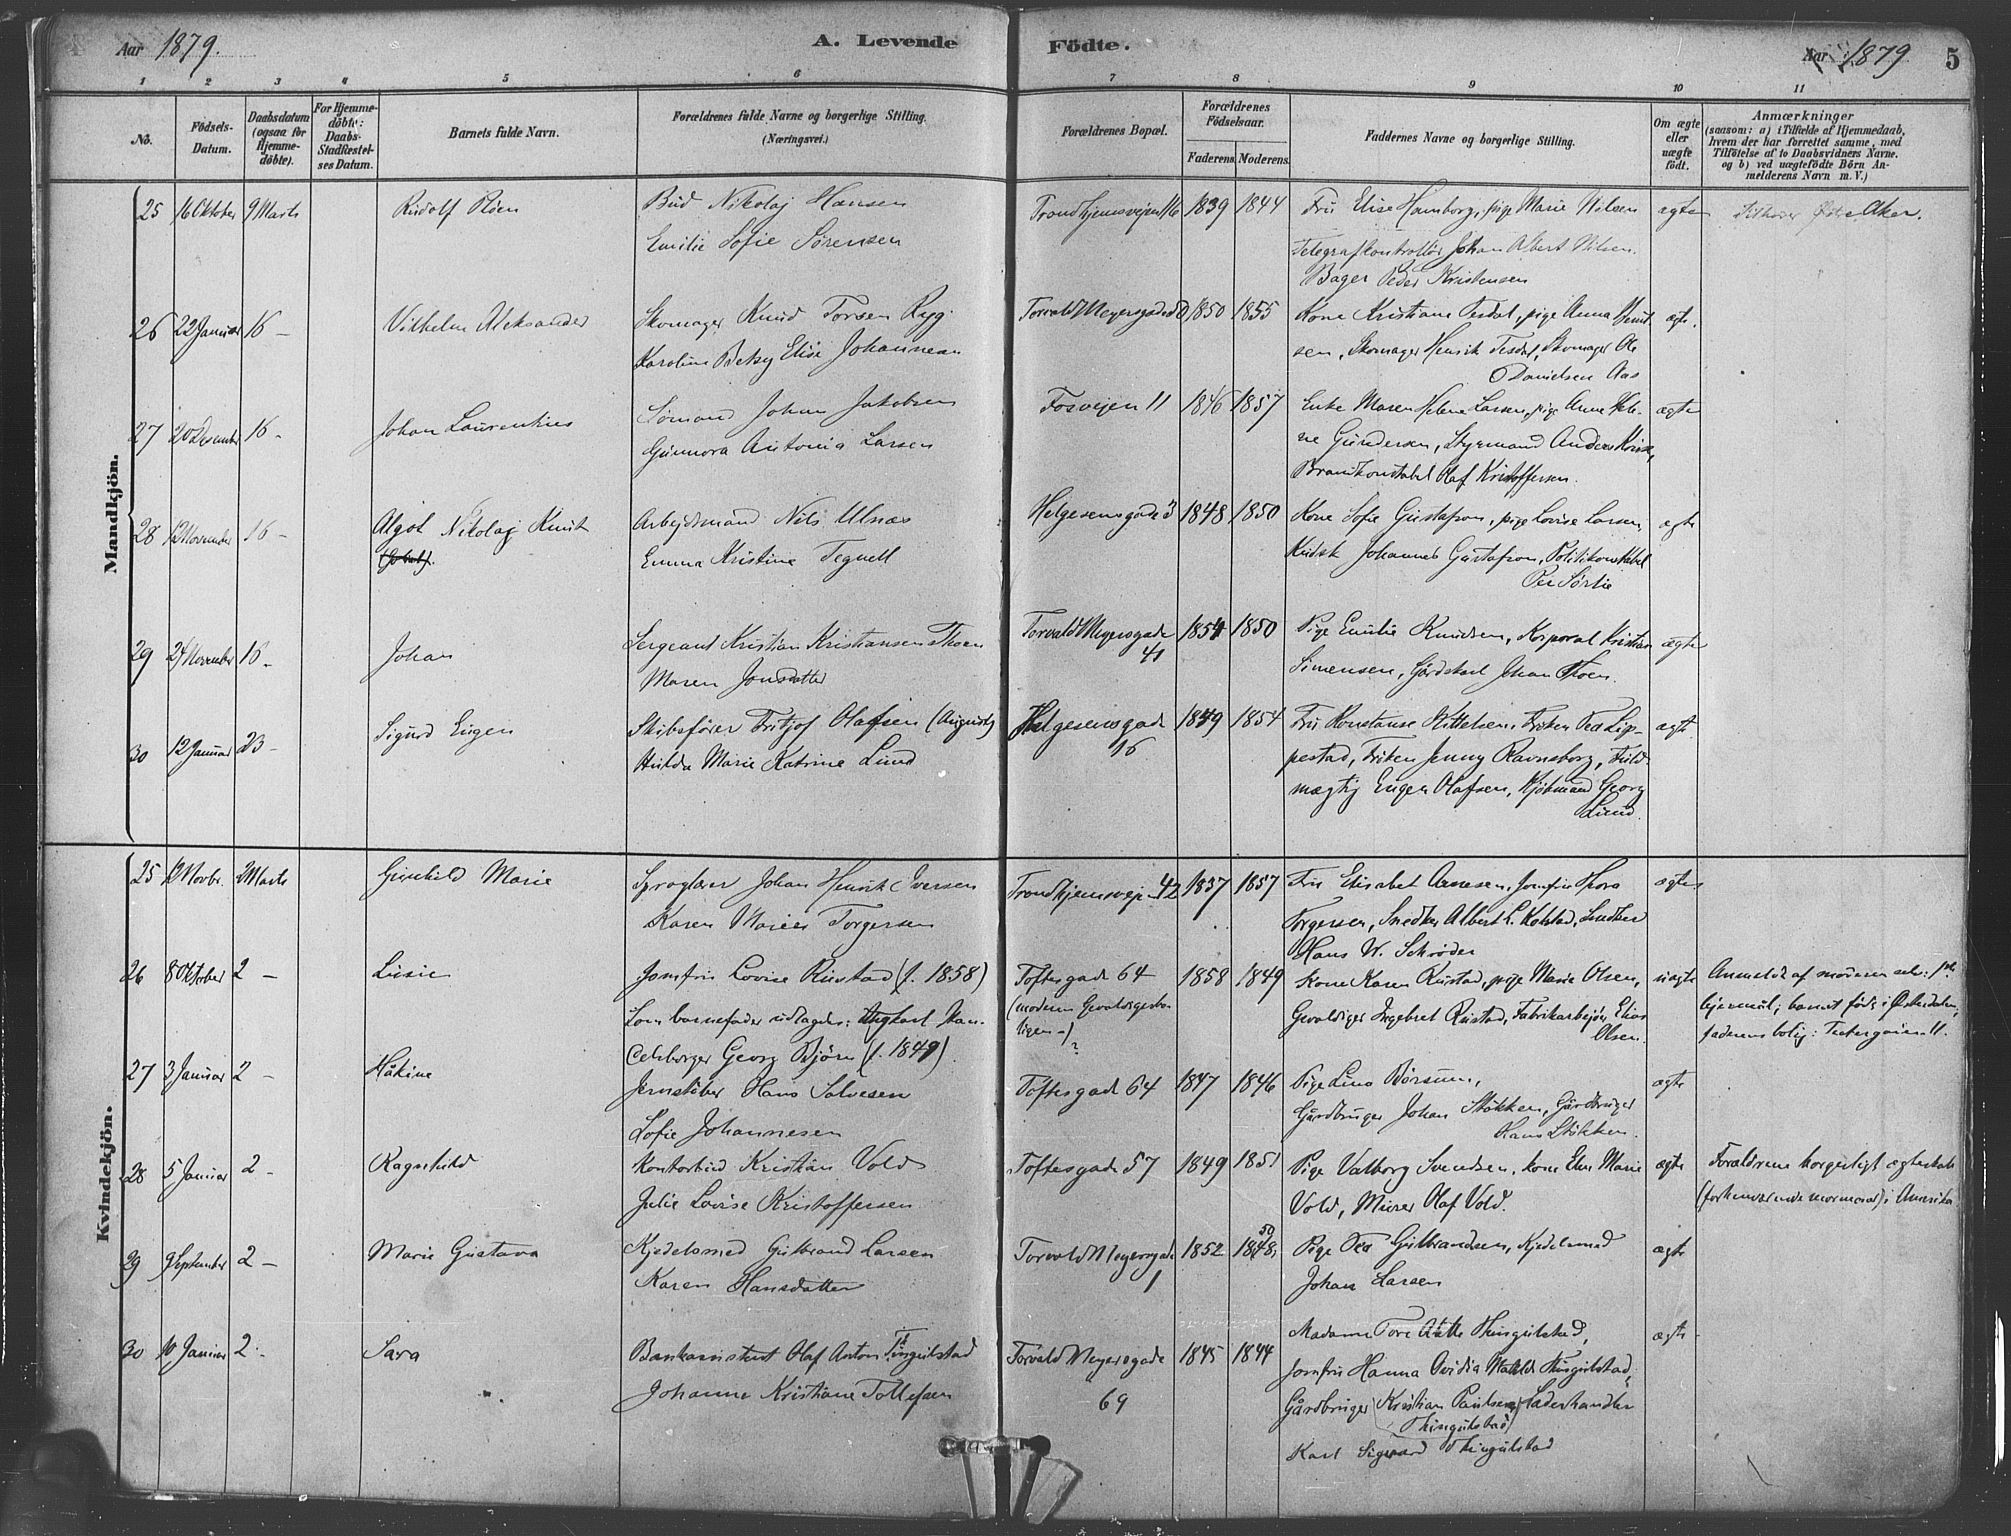 Aar 1879. A. Levende Födte. Aar 1879 5
1 2 3 4 5 6 7 8 9 10 11
No. Födsels-Datum. Daabsdatum (ogsaa for Hjemme-döbte). For Hjemme-döbte: Daabs-Stadfæstel-ses Datum. Barnets fulde Navn. Forældrenes fulde Navne og borgerlige Stilling. (Næringsvei.) Forældrenes Bopæl. Forældrenes Födselsaar. Faderens. Moderens. Faddernes Navne og borgerlige Stilling. Om ægte eller uægte födt. Anmærkninger (saasom: a) i Tilfælde af Hjemmedaab, hvem der har forrettet samme, med Tilföielse af to Daabsvidners Navne. og b) ved uægtefödte Börn An-melderens Navn m. V.)
Mandkjön.
25 16 Oktober 9 Marts Rudolf Bud Nikolaj Hansen Trondhjemsvejen 16 1839 1844 Fru Elise Hamborg, pige Marie Nilsen ægte Østre Aker.
Emilie Sofie Sørensen Telegrafkontrollør Johan Albert Nilsen.
Bager Peder Kristensen
26 22 Januar 16 – Vilhelm Aleksander Skomager Knud Torsen Ryg. Torvald Meyersgade 1850 1855 Kone Kristiane Tesdal, pige Anna ægte.
Karoline Betsy Elise Johannesen sen, Skomager Henrik Tesdal, Skomager Ole
Danielsen Aas
27 20 Desember 16 – Johan Laurentius Sømand Johan Jakobsen Fosvejen 11 1846 1857 Enke Maren Helene Larsen, pige Anne Hele- ægte
Gunnora Antonia Larsen ne Gundersen, Styrmand Anders
Brandkonstabel Olaf Kristoffersen.
28 12 November 16 – Algot Nikolaj Knut Arbejdsmand Nils Ulnæs Helgesensgade 3 1848 1850 Kone Sofie Gustafson, pige Lovise Larsen, ægte
Emma Kristine Tegnell Kudsk Johannes Gustafson, Politikonstabel
Per Sørlie
29 24 November 16 – Johan Sergeant Kristian Kristiansen Thoen Torvald Meyersgade 1854 1850 Pige Emilie Knudsen, Korporal Kristian ægte
Maren Jonsdatter 41 Simensen, Gårdskarl Johan Thoen.
30 12 Januar 23 – Sigurd Eugen Skibsfører Fritjof Olafsen (August) Helgesensgade 1849 1854 Fru Konstanse Kittelsen, Frøken Tea Lip- ægte
Hulda Marie Katrine Lund 16 pestad, Frøken Jenny Ravnsborg, Fuld-
mægtig Eugen Olafsen, Kjøbmand Georg
Lund.
Kvindekjön.
25 12 Novbr. 2 Marts Gunhild Marie Sproglærer Johan Henrik Iversen Trondhjemsvejen 42 1837 1857 Fru Elisabet Arnesen, Jomfru Thora ægte
Karen Torgersen Torgersen, Snedker Albert L. Kolstad, Snedker
Hans W. Schrøder
26 8 Oktober 2 – Lusie Jomfru Lovise Rustad (f. 1858) Toftesgade 64 1858 1849 Kone Karen Rustad, pige Marie Olsen, uægte Anmeldt af moderen selv:
Som barnefader udlagdes: (moderen Gevaldiger Ingebret Rustad, Fabrikarbejder Elias barnet født i Østerdalen,
Georg Bjørn (f. 1849) Olsen. faderens bolig: Teatergaden 11.
27 3 Januar 2 – Håkine Jernstøber Hans Salvesen Toftesgade 64 1847 1846 Pige Lina Børsum, ægte
Sofie Johannesen Gårdbruger Johan Støkken, Gårdbruger
Hans Støkken.
28 5 Januar 2 – Ragnhild Kontorbud Kristian Vold Toftesgade 57 1849 1851 Pige Valborg Svendsen, kone Elen Marie ægte Forældrene borgerligt ægteviede
Julie Lovise Kristoffersen Vold, Murer Olaf Vold. (forhenværende mormoner) i Amerika
29 9 September 2 – Marie Gustava Kjedelsmed Gulbrand Larsen Torvald Meyersgade 1852 50 1848, Pige Tea Gulbrandsen, Kjedelsmed ægte
Karen Hansdatter 1 Johan Larsen
30 10 Januar 2. – Sara Bankassistent Olaf Anton Thingulstad Torvald Meyersgade 1845 1844 Madame Tore Thingulstad, ægte
Johanne Kristiane Tollefsen 69 Jomfru Hanna Ovidia Thingulstad,
Gårdbruger (Kristian Paulsen Thingulstad) Læderhandler
Karl Sigvard Thingulstad